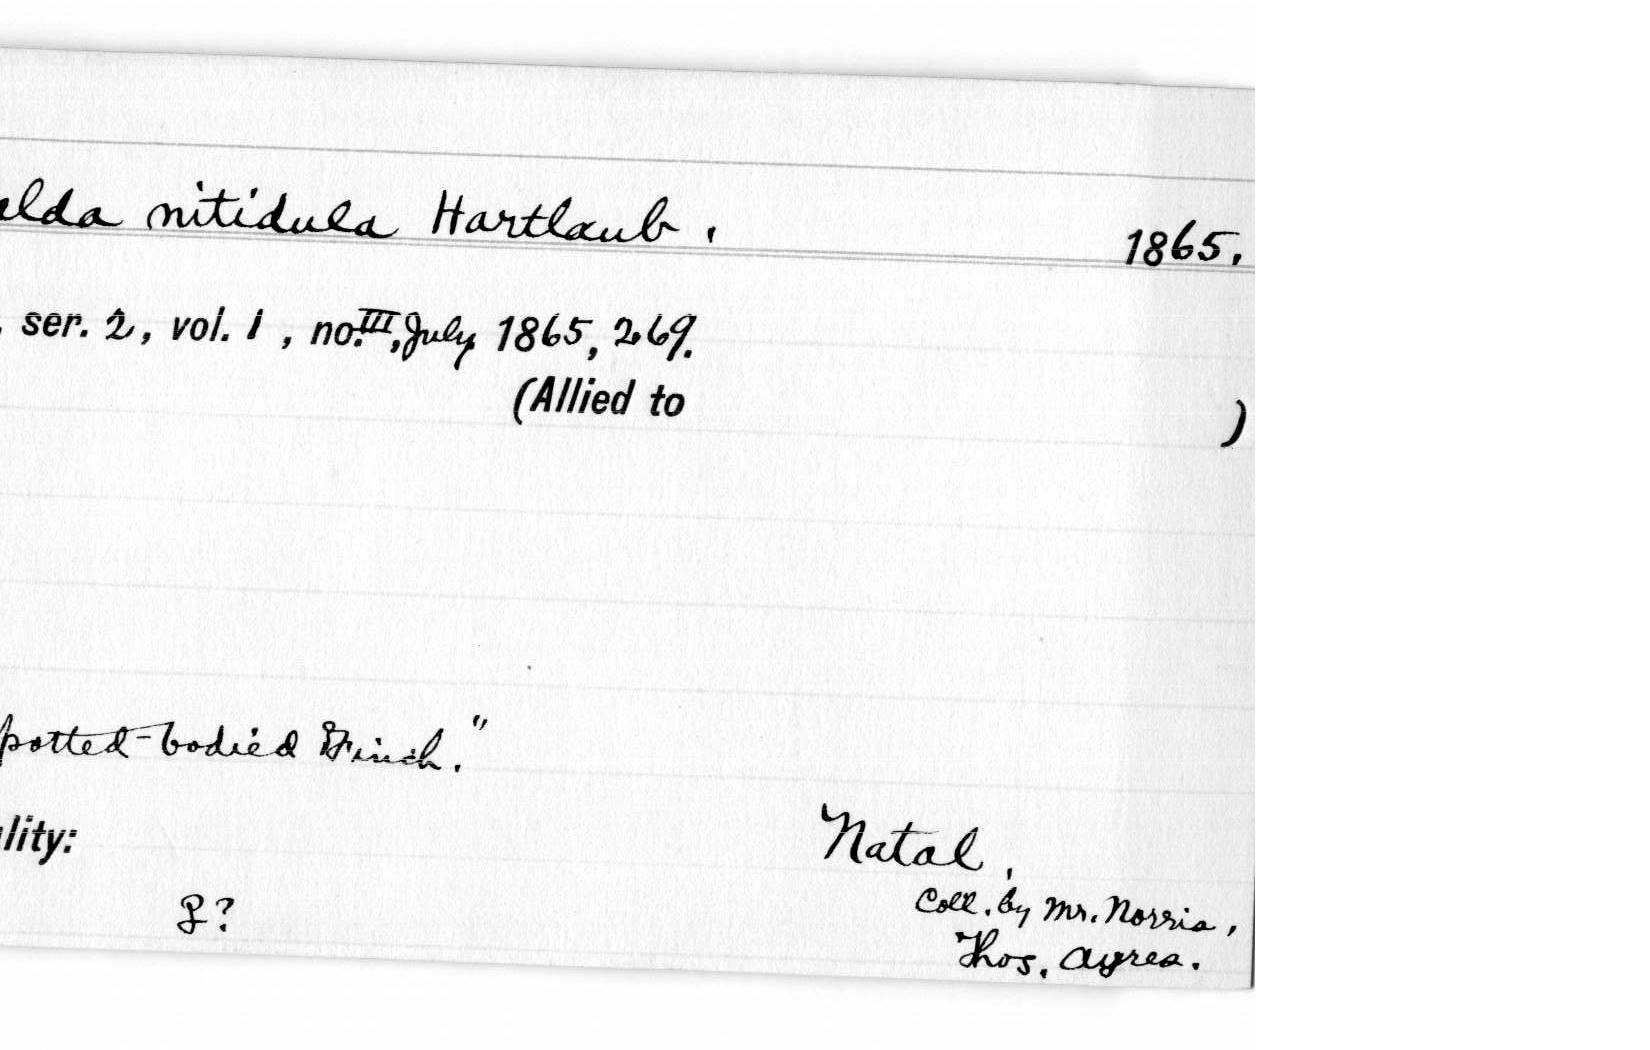 elda nitidula Hartlaub.
1865.
, ser. 2, vol. 1, no. III, July 1865, 269.
(Allied to )
potted-bodied Finch."
lity:
Natal,
♀?
Coll. by Mr. Norris,
Thos. Ayres.